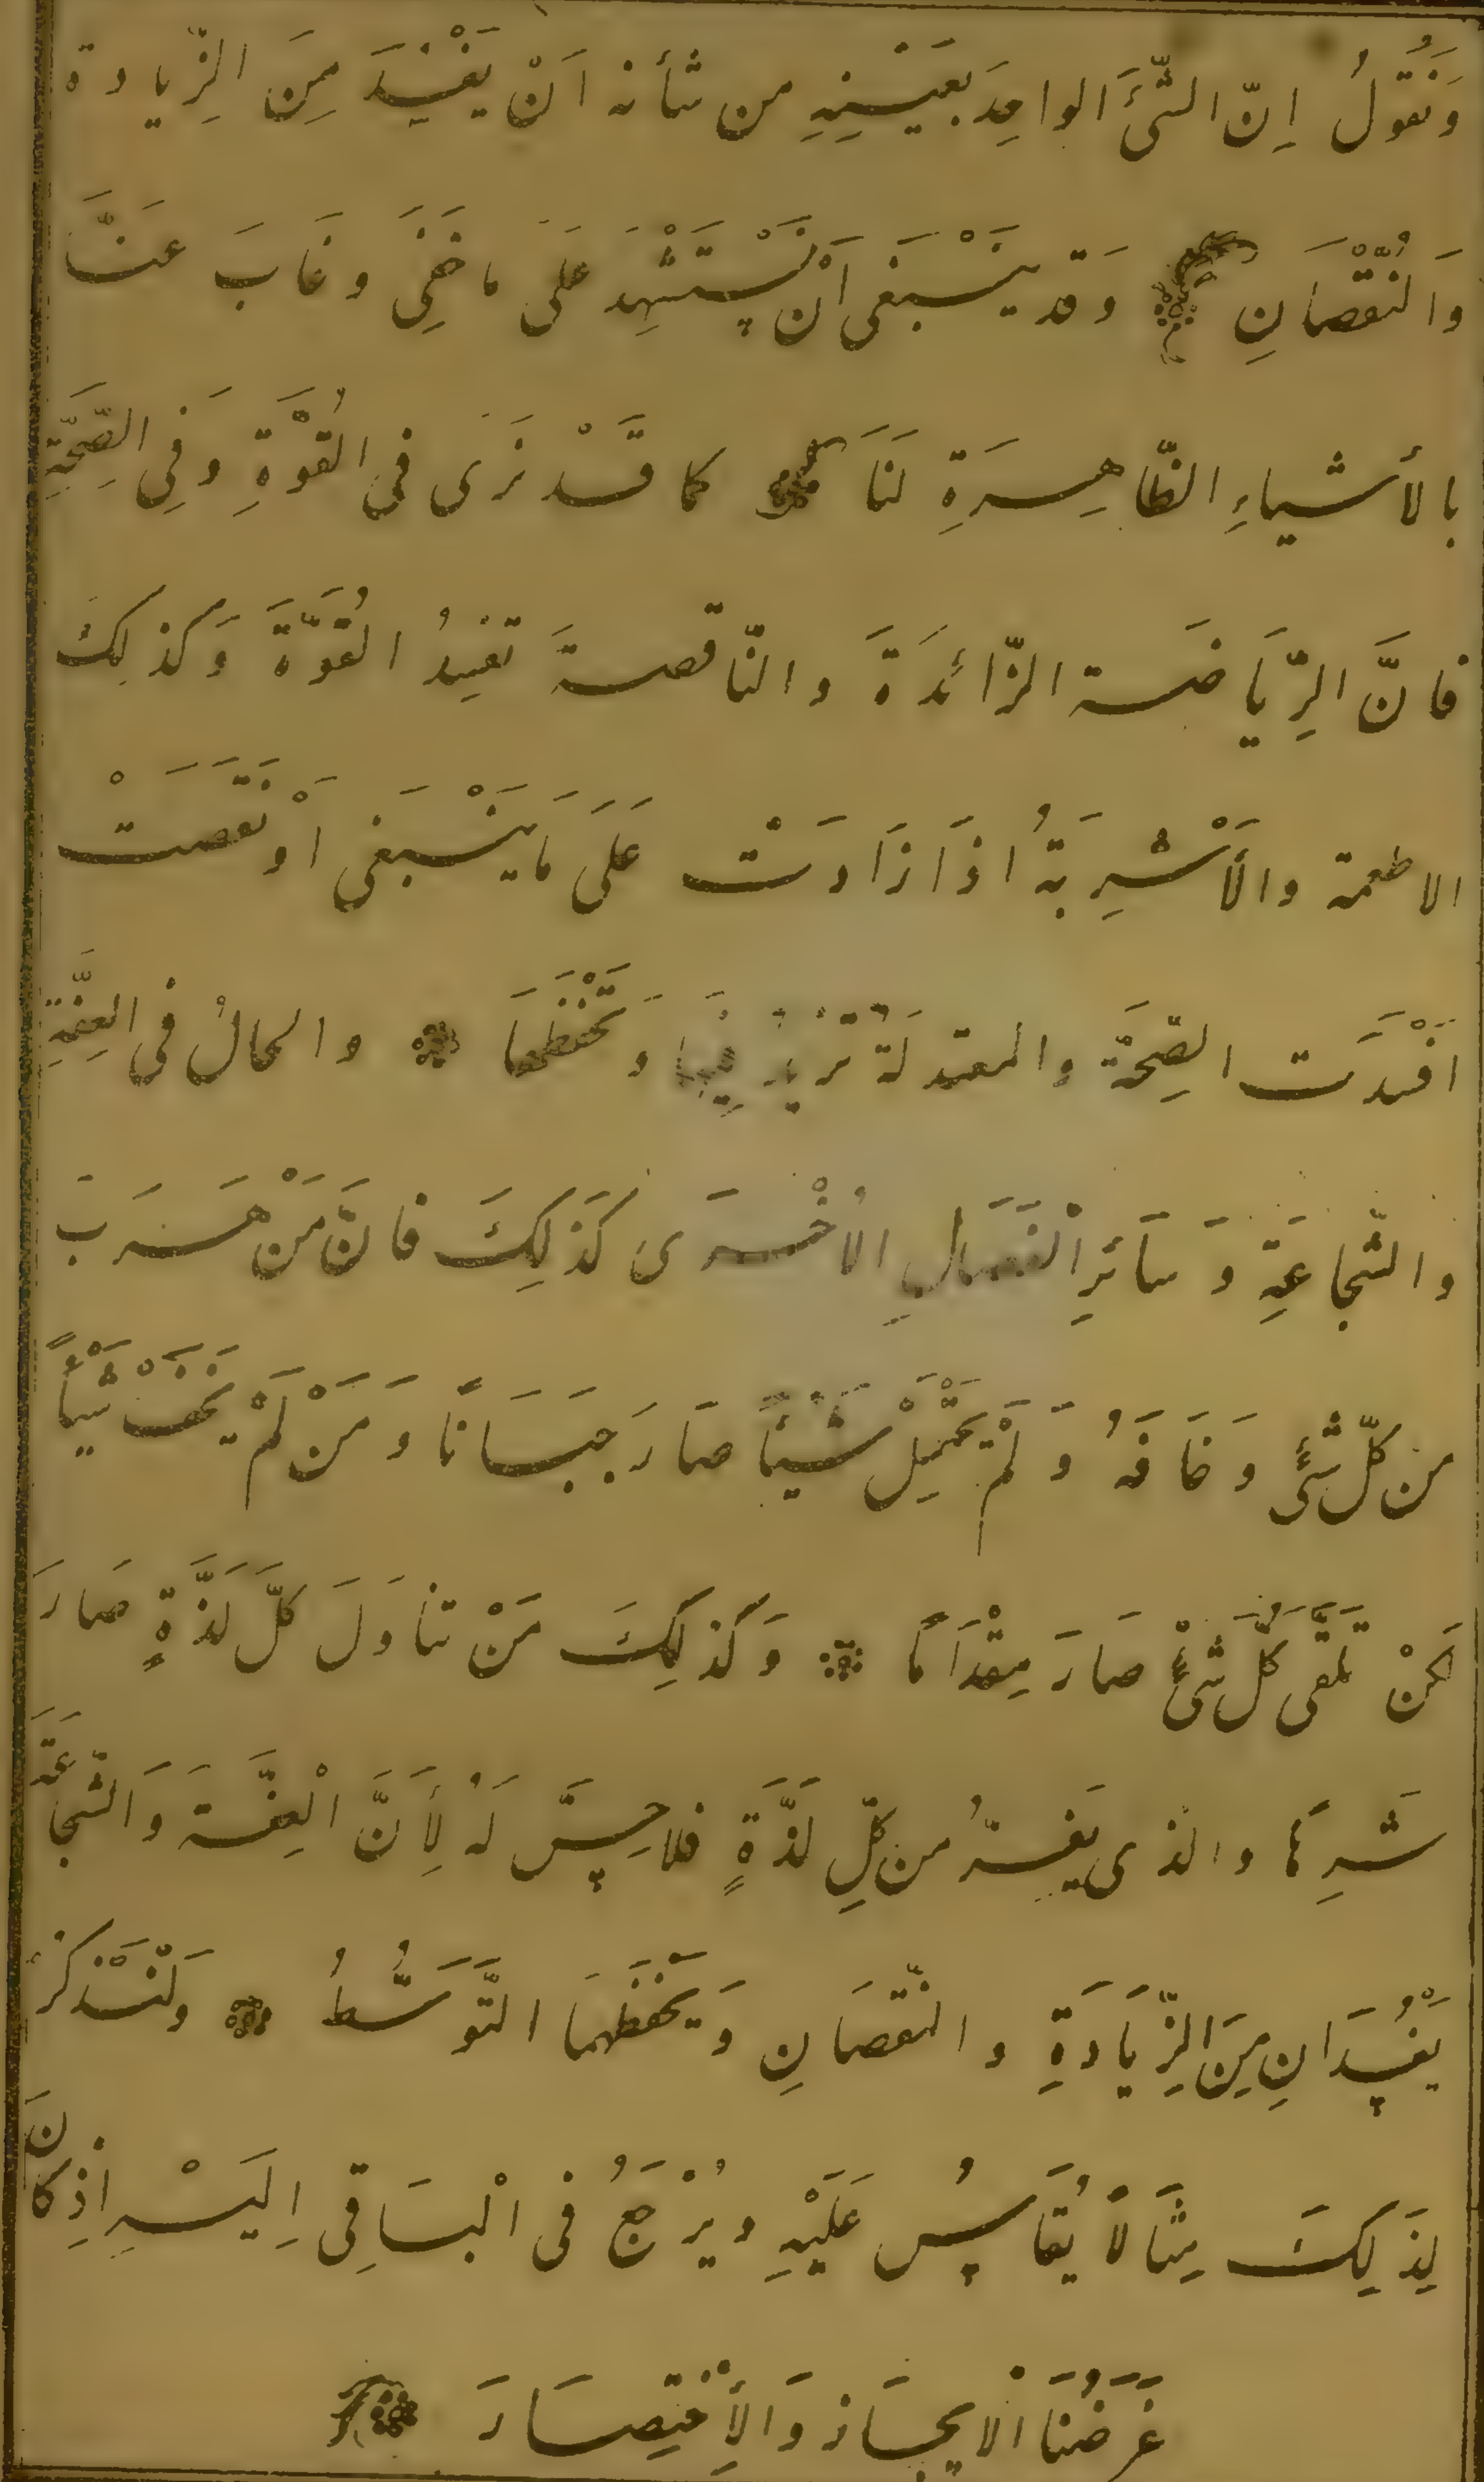 وَنَقُولُ اِنّ الشَّىَٔ الواحِدَ بعَيْنِهِ من شأنه اَنْ يَفْسُدَ مِنَ الزِّيادة
وَالنُّقْصَانِ وَقد يَنْبَغى اَنْ نَسْتَشْهِدَ عَلَى ما خَفِىَ وغَابَ عَنَّا
بالأشياءِ الظّاهِرَةِ لَنَا كما قَدْ نَرَى فى القُوَّةِ وَفِى الصِّحَّةِ
فانَّ الرِّيَاضَة الزَّائدَةَ والنّاقصةَ تفسدُ القُوَّةَ وَكذلِكَ
الاطعمة والأَشْرِبَةُ اذَا زَادَتْ عَلَى مَا يَنْبَغى اَوْ نَقَصَتْ
افْسَدَت الصِّحَّة والمعتدلَةُ تزيد فِيهَا وَتَحْفَظهَا والحالُ فى العِفَّةِ
والشّجاعَةِ وَسَائرِ الْفَضَائلِ الاُخْرَى كَذَلِكَ فانَّ مَنْ هَرَبَ
من كلّ شىٍٔ وخَافَهُ وَلَمْ يَحْتَمِلْ شَيْئاً صَارَ جَبَانًا وَمَنْ لَمْ يَخَفْ شَيْأً
لكنْ تلَقَّى كُلَّ شَىْءٍ صَارَ مِقْدَامًا وَكذلِكَ مَنْ تناوَلَ كلَّ لَذَّةٍ صَارَ
شَرِهًا والذى يَفرُّ من كلِّ لَذَّةٍ فلا حِسَّ لَهُ لِأَنَّ الْعِفَّةَ وَالشّجَاعَةَ
يَفْسُدَانِ مِنَ الزِّيَادَةِ والنّقصَانِ وَيَحْفَظهمَا التَّوَسُّطُ وَلْنَذكرْ
لِذَلِكَ مِثَالاً يُقَاسُ عَلَيْهِ ويُرْجَعُ فى الْبَاقِى اِلَيْهِ اذِ كانَ
غَرَضُنَا الْايجَاز وَالأِخْتِصَارَ